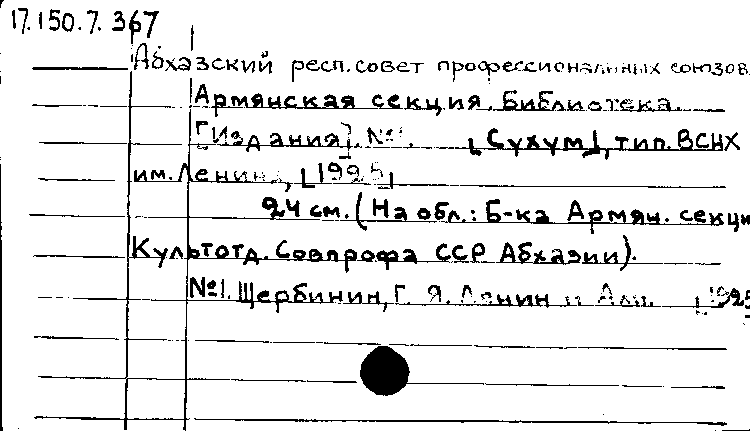 17.150.7.367
Абхазский респ. совет профессиональных союзов.
Армянская секция. Библиотека.
[Издания]. №1. [Сухум], тип. ВСНХ
им. Ленина, [1925]
24 см. (На обл.: Б-ка Армян. секци
Культотд. Совпрофа ССР Абхазии).
№1. Щербинин, Г. Я. Ленин и [1925